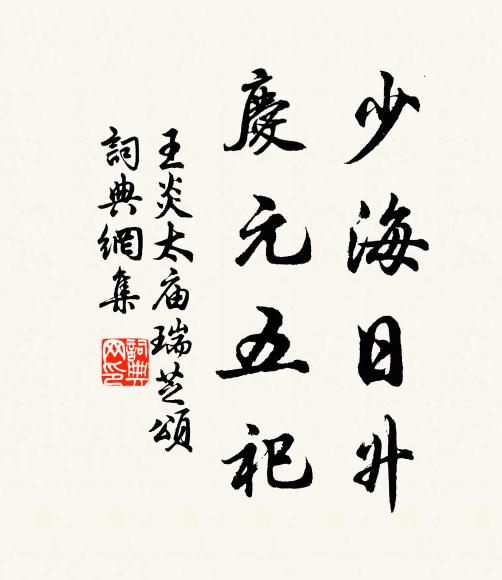 少海日升
慶元五祀
王炎太庙瑞芝頌
詞典網集
詞典網印